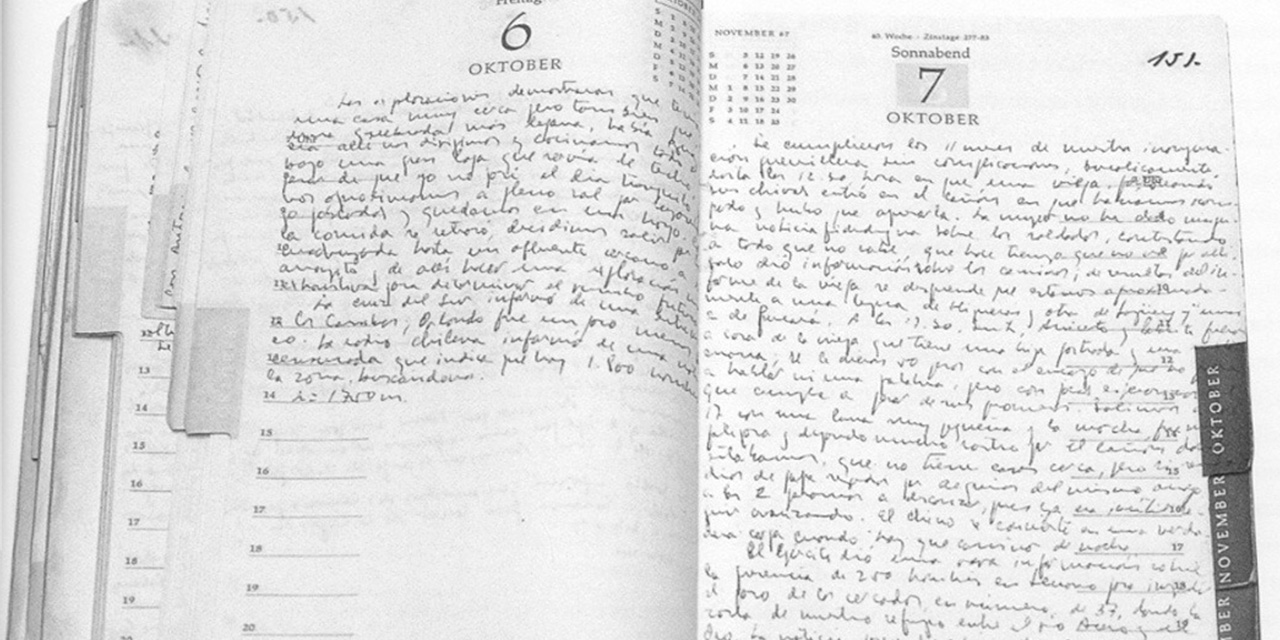 150.
Freitag
6
OKTOBER
Las exploraciones demostraron que
una casa muy cerca pero también que
quebrada más lejana, había
allí nos dirigimos y cocinamos todo
bajo una gran laja que servía de techo
pesar de que yo no pasé el día tranquilo
nos aproximamos a pleno sol por
poblados y quedamos en un hoyo.
la comida se retrasó, decidimos salir
madrugada hasta un afluente cercano a
arroyito y de allí hacer una exploración
exhaustiva para determinar el rumbo futuro
La Cruz del Sur informó de una
los Cambas; Orlando fue un poco menos
La radio chilena informó de una
censurada que indica que hay 1.800
la zona buscándonos.
h = 1750 m.
12
13
14
15
16
17
18
19
14
15
16
17
18
19
20
NOVEMBER 67
S 5 12 19 26
M 6 13 20 27
D 7 14 21 28
M 1 8 15 22 29
D 2 9 16 23 30
F 3 10 17 24
S 4 11 18 25
40. Woche
Sonnabend
7
OKTOBER
151.
Se cumplieron los 11 meses de nuestra inaugura-
ción guerrillera sin complicaciones, bucólicamente,
hasta las 12.30, hora en que una vieja, pastoreando
sus chivas entró en el cañón en que habíamos acam-
pado y hubo que apresarla. La mujer no ha dado ningu-
na noticia fidedigna sobre los soldados, contestando
a todo que no sabe, que hace tiempo que no va por allí
sólo dió información sobre los caminos; de resultas del in-
forme de la vieja se desprende que estamos aproximada-
mente a una legua de Higueras y otra de Jagüey y unas
2 de Pucará. A las 17.30, Inti, Aniceto y Pablito fueron
a casa de la vieja que tiene una hija postrada y una
enana; se le dieron 50 pesos con el encargo de que no
a hablar ni una palabra, pero con pocas esperanzas
que cumpla a pesar de sus promesas. Salimos
17 con una luna muy pequeña y la marcha fue
peligrosa y dejando mucho rastro por el cañón donde
estábamos, que no tiene casas cerca, pero sí
díos de papa regados por acequias del mismo arroyo
a las 2 paramos a descansar, pues ya era inútil se-
guir avanzando. El chino se convierte en una verda-
dera carga cuando hay que caminar de noche.
El Ejército dió una rara información sobre
la presencia de 250 hombres en Serrano para impedir
el paso de los cercados, en número de 37, dando la
zona de nuestro refugio entre el río Acero y el
Oro. La noticia
OKTOBER
NOVEMBER